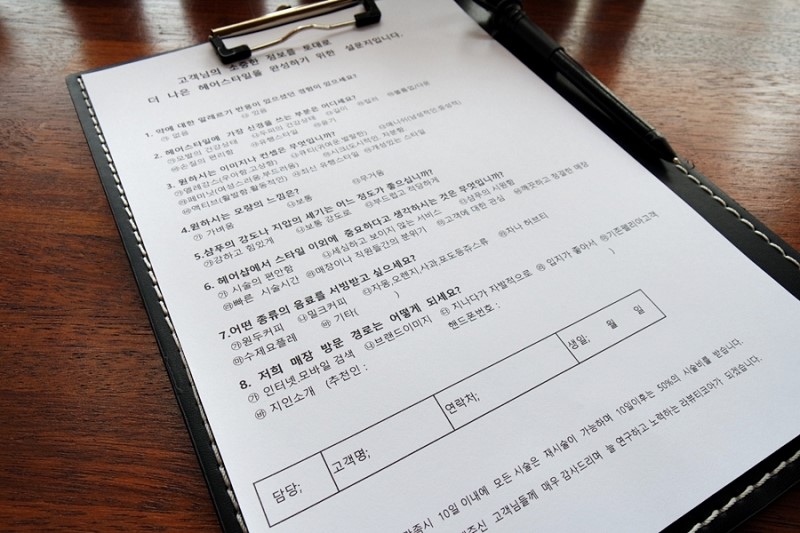 고객님의 소중한 정보를 토대로
더 나은 헤어스타일을 완성하기 위한 설문지입니다.
1. 약에 대한 알레르기 반응이 있으셨던 경험이 있으세요?
㉮ 없음 ㉯ 있음
2. 헤어스타일에 가장 신경을 쓰는 부분은 어디세요?
㉮모발의 건강상태 ㉯두피의 건강상태 ㉰길이 ㉱컬러
㉲손질의 편리함 ㉳유행스타일
3. 원하시는 이미지나 컨셉은 무엇입니까?
㉮엘레강스(우아함,고상함) ㉯큐티(귀여운,발랄한)
㉱페미닌(여성스러움,부드러움) ㉲시크(도시적인, 차분함)
㉳액티브(활발함,활동적인) ㉴최신 유행스타일 ㉵개성있는 스타일
4.원하시는 모량의 느낌은?
㉮ 가벼움 ㉯보통 ㉰무거움
5.샴푸의 강도나 지압의 세기는 어느 정도가 좋으십니까?
㉮강하고 힘있게 ㉯보통 강도로 ㉰부드럽고 적당하게
6. 헤어샵에서 스타일 이외에 중요하다고 생각하시는 것은 무엇입니까?
㉮ 시술의 편안함 ㉯세심하고 보이지 않는 서비스 ㉰샴푸의 시원함 ㉱깨끗하고 청결한 매장
㉲빠른 시술시간 ㉳매장이나 직원들간의 분위기 ㉴고객에 대한 관심
7.어떤 종류의 음료를 서빙받고 싶으세요?
㉮원두커피 ㉯밀크커피 ㉰자몽,오렌지,사과,포도등쥬스류 ㉱차나 허브티
㉲수제요플레 ㉳ 기타( )
8. 저희 매장 방문 경로는 어떻게 되세요?
㉮ 인터넷,모바일 검색 ㉯브랜드이미지 ㉰ 지나다가 자발적으로 ㉱ 입지가 좋아서 ㉲기존웰리아고객
㉳ 지인소개 (추천인 : 핸드폰번호 : )
담당; 고객명; 연락처; 생일; 월 일
10일 이내에 모든 시술은 재시술이 가능하며 10일이후는 50%의 시술비를 받습니다.
고객님들께 매우 감사드리며 늘 연구하고 노력하는 라뷰티코아가 되겠습니다.